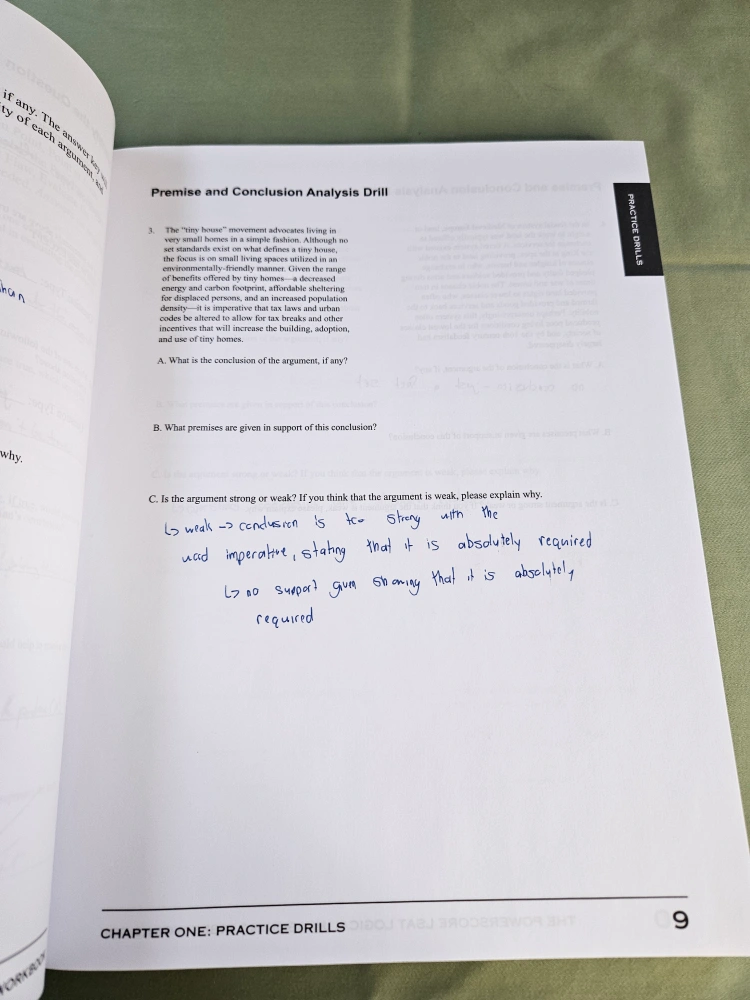 if any. The answer key
ity of each argument, and
PRACTICE DRILLS
Premise and Conclusion Analysis Drill
3. The "tiny house" movement advocates living in
very small homes in a simple fashion. Although no
set standards exist on what defines a tiny house,
the focus is on small living spaces utilized in an
environmentally-friendly manner. Given the range
of benefits offered by tiny homes—a decreased
energy and carbon footprint, affordable sheltering
for displaced persons, and an increased population
density—it is imperative that tax laws and urban
codes be altered to allow for tax breaks and other
incentives that will increase the building, adoption,
and use of tiny homes.
A. What is the conclusion of the argument, if any?
B. What premises are given in support of this conclusion?
why.
C. Is the argument strong or weak? If you think that the argument is weak, please explain why.
↳ weak → conclusion is too strong with the
word imperative, stating that it is absolutely required
↳ no support given showing that it is absolutely
required
CHAPTER ONE: PRACTICE DRILLS
9
WORKBOOK